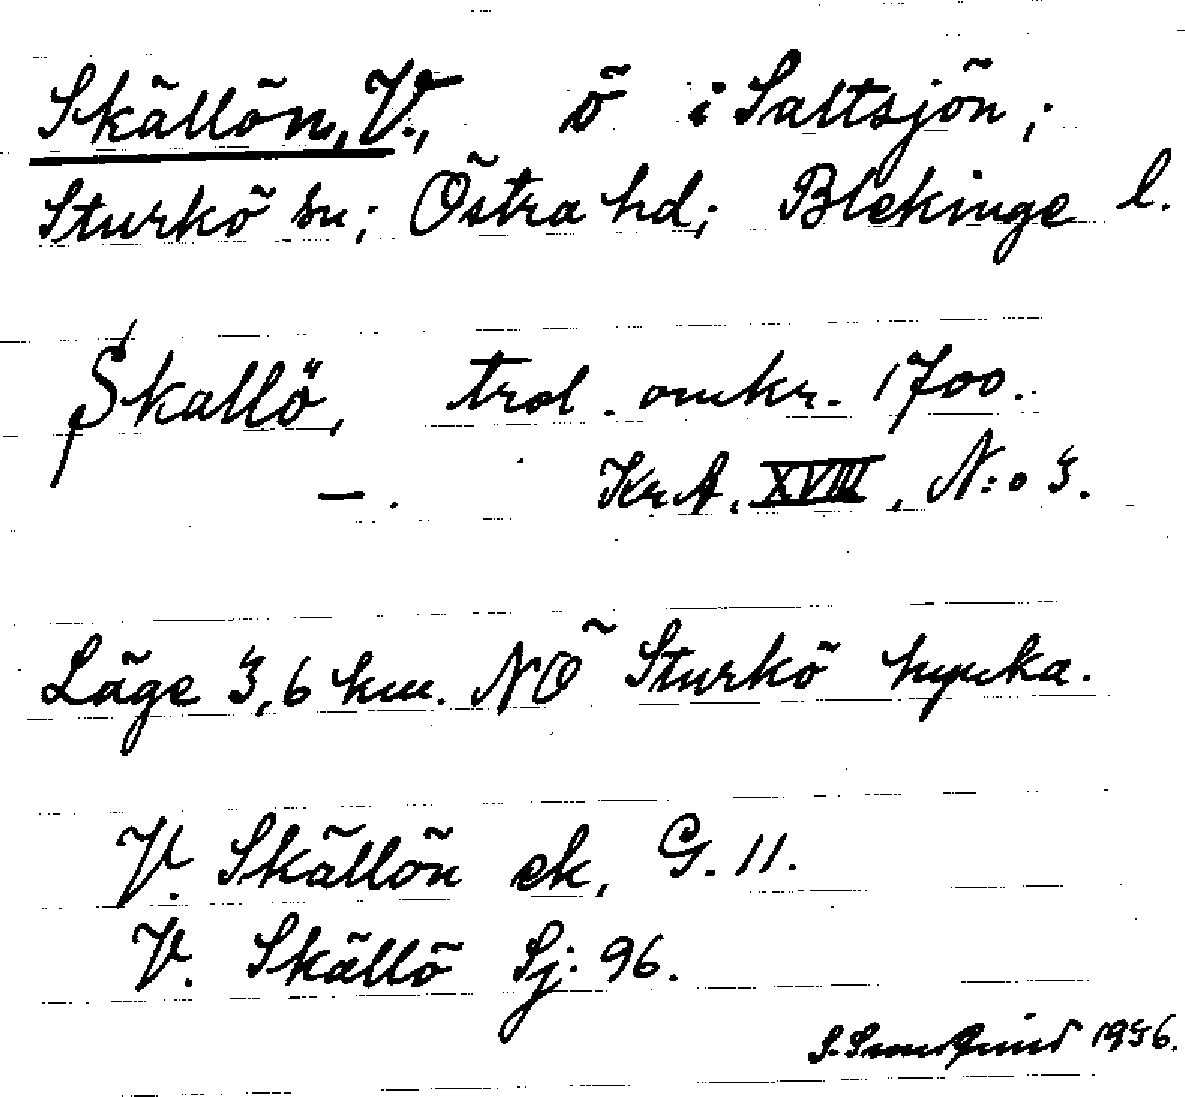 Skällön, V., ö i Saltsjön;
Sturkö sn; Östra hd; Blekinge l.
Skallö, trol. omkr. 1700.
—. KrA, XVIII, N:o 3.
Läge 3,6 km. NÖ Sturkö kyrka.
V. Skällön ek, G. 11.
V. Skällö Sj. 96.
1956.